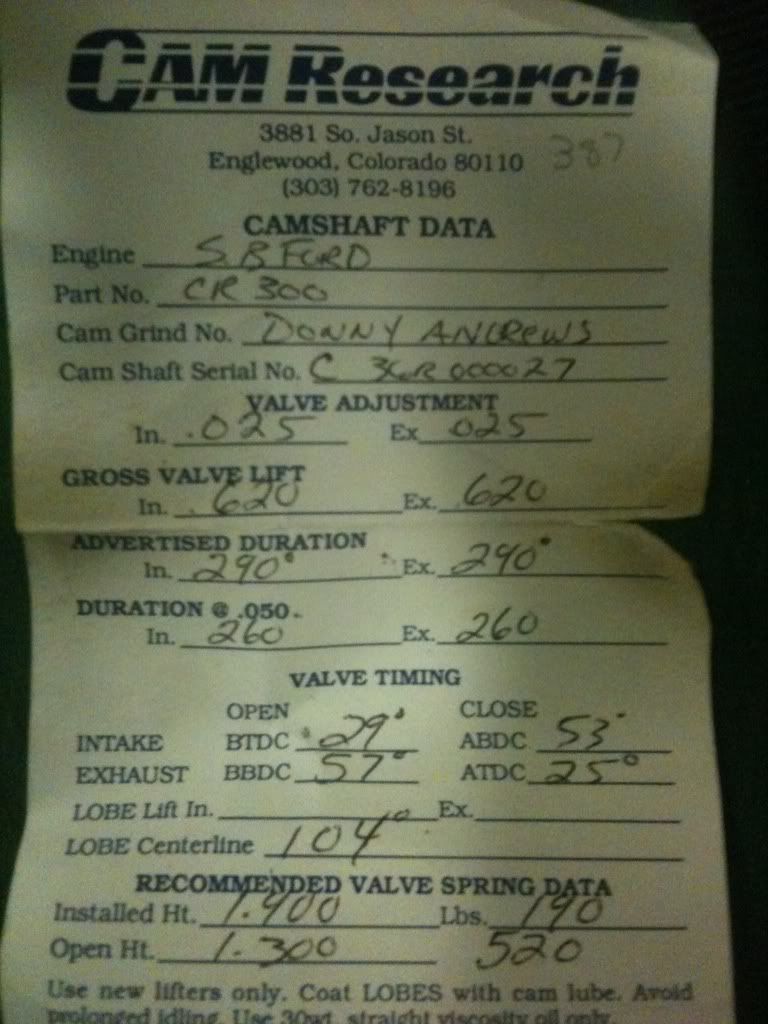 CAM Research
3881 So. Jason St.
Englewood, Colorado 80110 387
(303) 762-8196
CAMSHAFT DATA
Engine S.B FORD
Part No. CR 300
Cam Grind No. DONNY ANDREWS
Cam Shaft Serial No. C 000027
VALVE ADJUSTMENT
In. .025 Ex 025
GROSS VALVE LIFT
In. .620 Ex. .620
ADVERTISED DURATION
In. 290° Ex. 290°
DURATION @ .050.
In. 260 Ex. 260
VALVE TIMING
OPEN CLOSE
INTAKE BTDC 29° ABDC 53°
EXHAUST BBDC 57° ATDC 25°
LOBE Lift In. Ex.
LOBE Centerline 104°
RECOMMENDED VALVE SPRING DATA
Installed Ht. 1.900 Lbs. 190
Open Ht. 1.300 520
Use new lifters only. Coat LOBES with cam lube. Avoid
prolonged idling. Use 30wt. straight viscosity oil only.